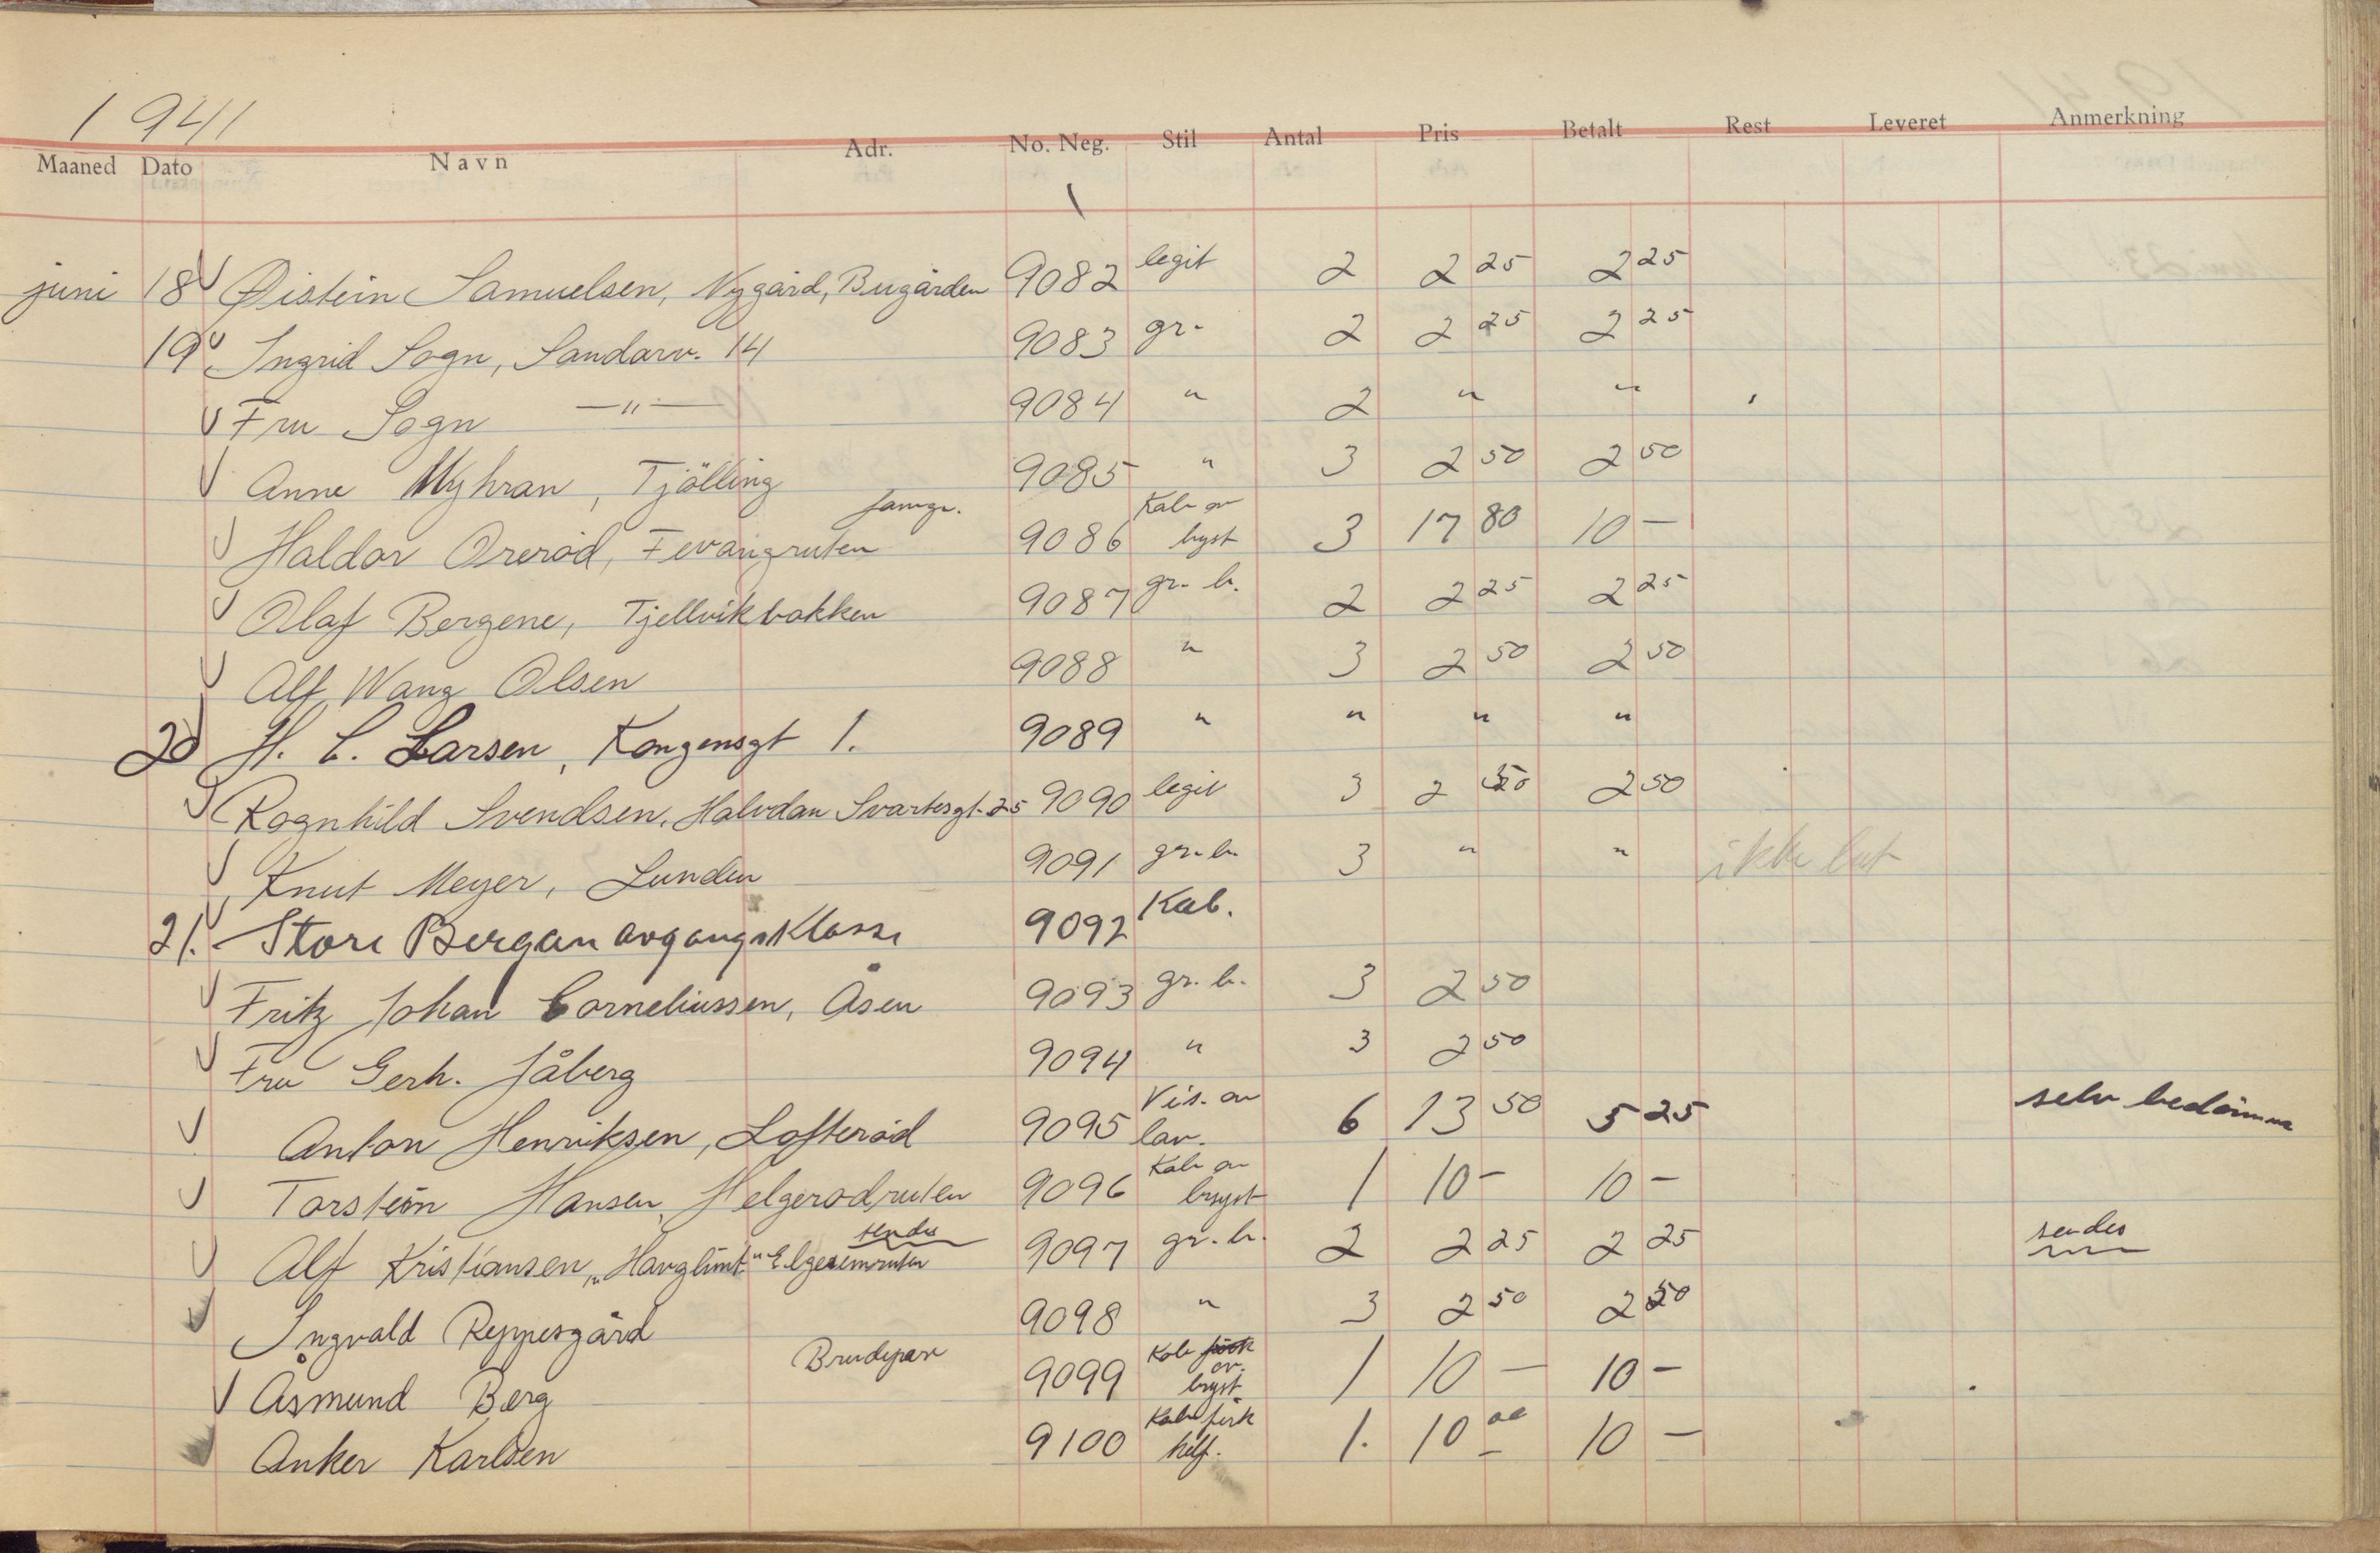 1941
Maaned Dato Navn Adr. No. Neg. Stil Antal Pris Betalt Rest Leveret Anmerkning
juni 18 Øistein Samuelsen, Nygård, Bugården 9082 legit 2 2 25 2 25
19 Ingrid Sogn, Sandarv. 14 9083 gr. 2 2 25 2 25
Fru Sogn —"— 9084 " 2 " "
Anne Myhran, Tjölling 9085 " 3 2 50 2 50
Haldor Oreröd, Fevangruten famgr. 9086 Kab av bryst 3 17 80 10 —
Olaf Bergene, Tjellvikbakken 9087 gr. b. 2 2 25 2 25
Alf Wang Olsen 9088 " 3 2 50 2 50
20 H. C. Larsen, Kongensgt 1. 9089 " " " "
Ragnhild Svendsen, Halvdan Svartesgt. 25 9090 legit 3 2 50 2 50
Knut Meyer, Lunden 9091 gr. b. 3 " " ikke
21. Store Bergan avgangsklasse 9092 Kab.
Fritz Johan Corneliussen, Åsen 9093 gr. b. 3 2 50
Fru Gerh. Jåberg 9094 " 3 2 50
Anton Henriksen, Lofteröd 9095 Vis. av lav. 6 13 50 5 25 selv bedömme
Torstein Hansen, Helgerodruten 9096 Kab av bryst 1 10 — 10 —
Alf Kristiansen, "Havglimt" Elgesemruten sendes 9097 gr. b. 2 2 25 2 25 sendes
Ingvald Reppesgård 9098 " 3 2 50 2 50
Åsmund Berg Brudepar 9099 Kab av. bryst 1 10 — 10 —
Anker Karlsen 9100 Kab helf. 1. 10 00 10 —